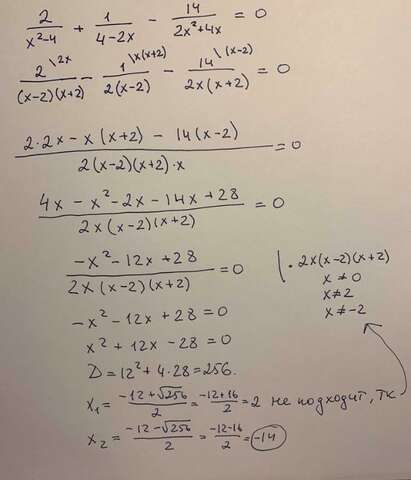 2/(x²-4) + 1/(4-2x) - 14/(2x²+4x) = 0
2\2x/((x-2)(x+2)) - 1\x(x+2)/(2(x-2)) - 14\(x-2)/(2x(x+2)) = 0
(2·2x - x(x+2) - 14(x-2))/(2(x-2)(x+2)·x) = 0
(4x - x² - 2x - 14x + 28)/(2x(x-2)(x+2)) = 0
(-x² - 12x + 28)/(2x(x-2)(x+2)) = 0 | · 2x(x-2)(x+2)
x ≠ 0
x ≠ 2
x ≠ -2
-x² - 12x + 28 = 0
x² + 12x - 28 = 0
D = 12² + 4·28 = 256.
x₁ = (-12+√256)/2 = (-12+16)/2 = 2 не подходит, тк
x₂ = (-12-√256)/2 = (-12-16)/2 = -14